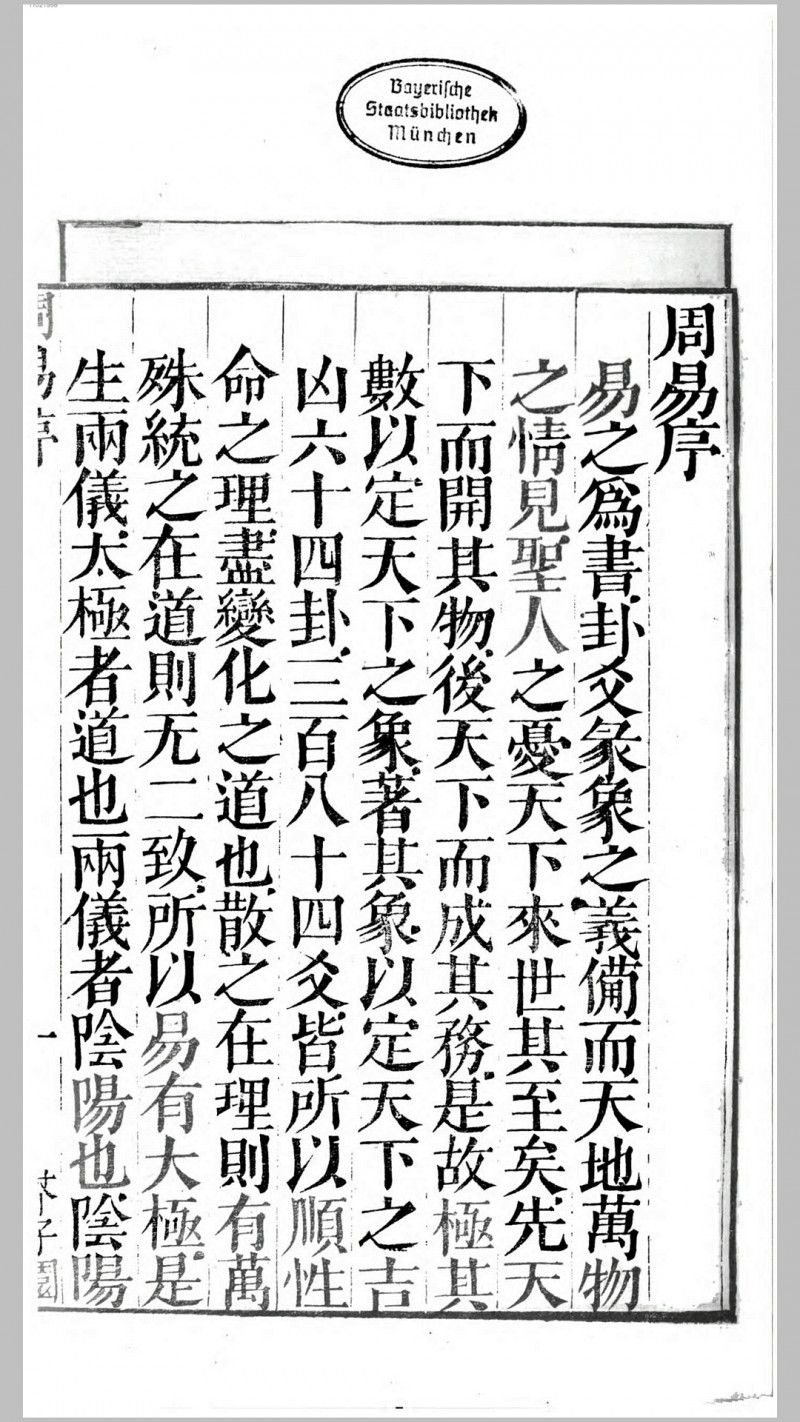 Bayerische
Staatsbibliothek
München
周易序
易之爲書卦爻彖象之義備而天地萬物
之情見聖人之憂天下來世其至矣先天
下而開其物後天下而成其務是故極其
數以定天下之象著其象以定天下之吉
凶六十四卦三百八十四爻皆所以順性
命之理盡變化之道也散之在理則有萬
殊統之在道則无二致所以易有大極是
生兩儀太極者道也兩儀者陰陽也陰陽
周易序
一
芥子園